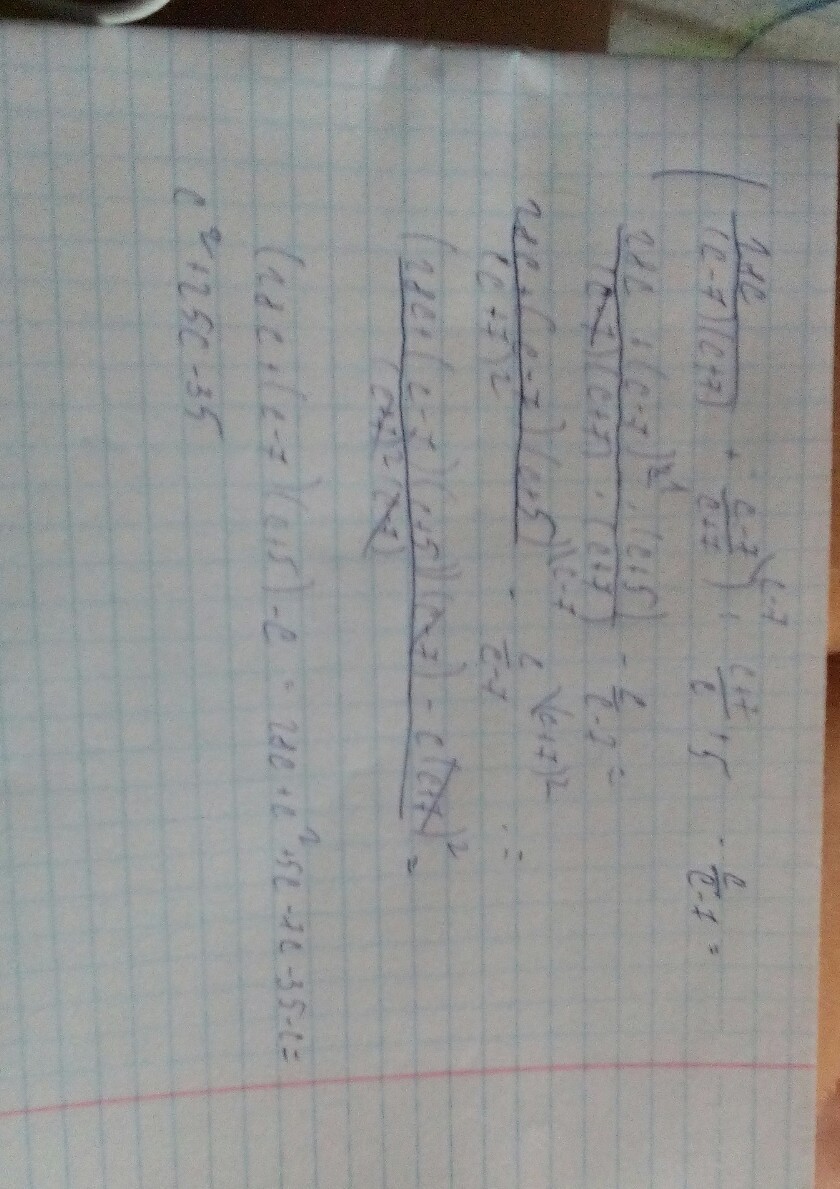 ( 28c / (c-7)(c+7) + c-7 / c+7 \c-7 ) : c+7 / c +5 - c / c-7 =
28c + (c-7)² · (c+5) / (c-7)(c+7) · (c+7) - c / c-7 =
28c + (c-7)(c+5) \c-7 / (c+7)2 - c / c-7 \(c+7)2 =
(28c + (c-7)(c+5))(c-7) - c(c+7)² / (c+7)2 (c-7) =
(28c + (c-7)(c+5) - c = 28c + c² +5c -7c -35-c =
c² +25c -35